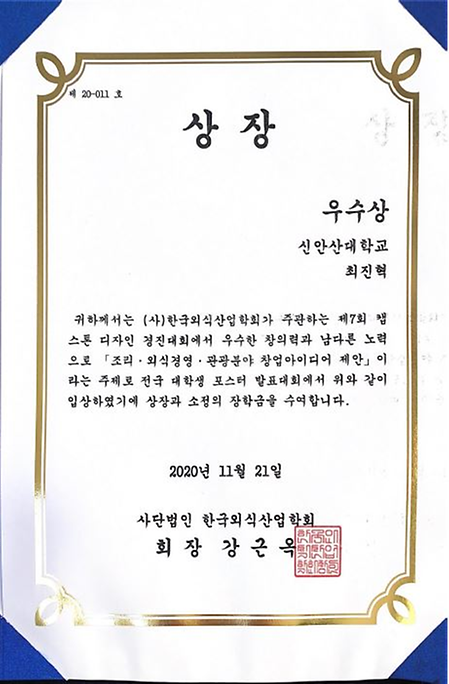 제 20-011 호
상 장
우수상
신안산대학교
최진혁
귀하께서는 (사)한국외식산업학회가 주관하는 제7회 캡
스톤 디자인 경진대회에서 우수한 창의력과 남다른 노력
으로 「조리·외식경영·관광분야 창업아이디어 제안」이
라는 주제로 전국 대학생 포스터 발표대회에서 위와 같이
입상하였기에 상장과 소정의 장학금을 수여합니다.
2020년 11월 21일
사단법인 한국외식산업학회
회 장 강 근 옥